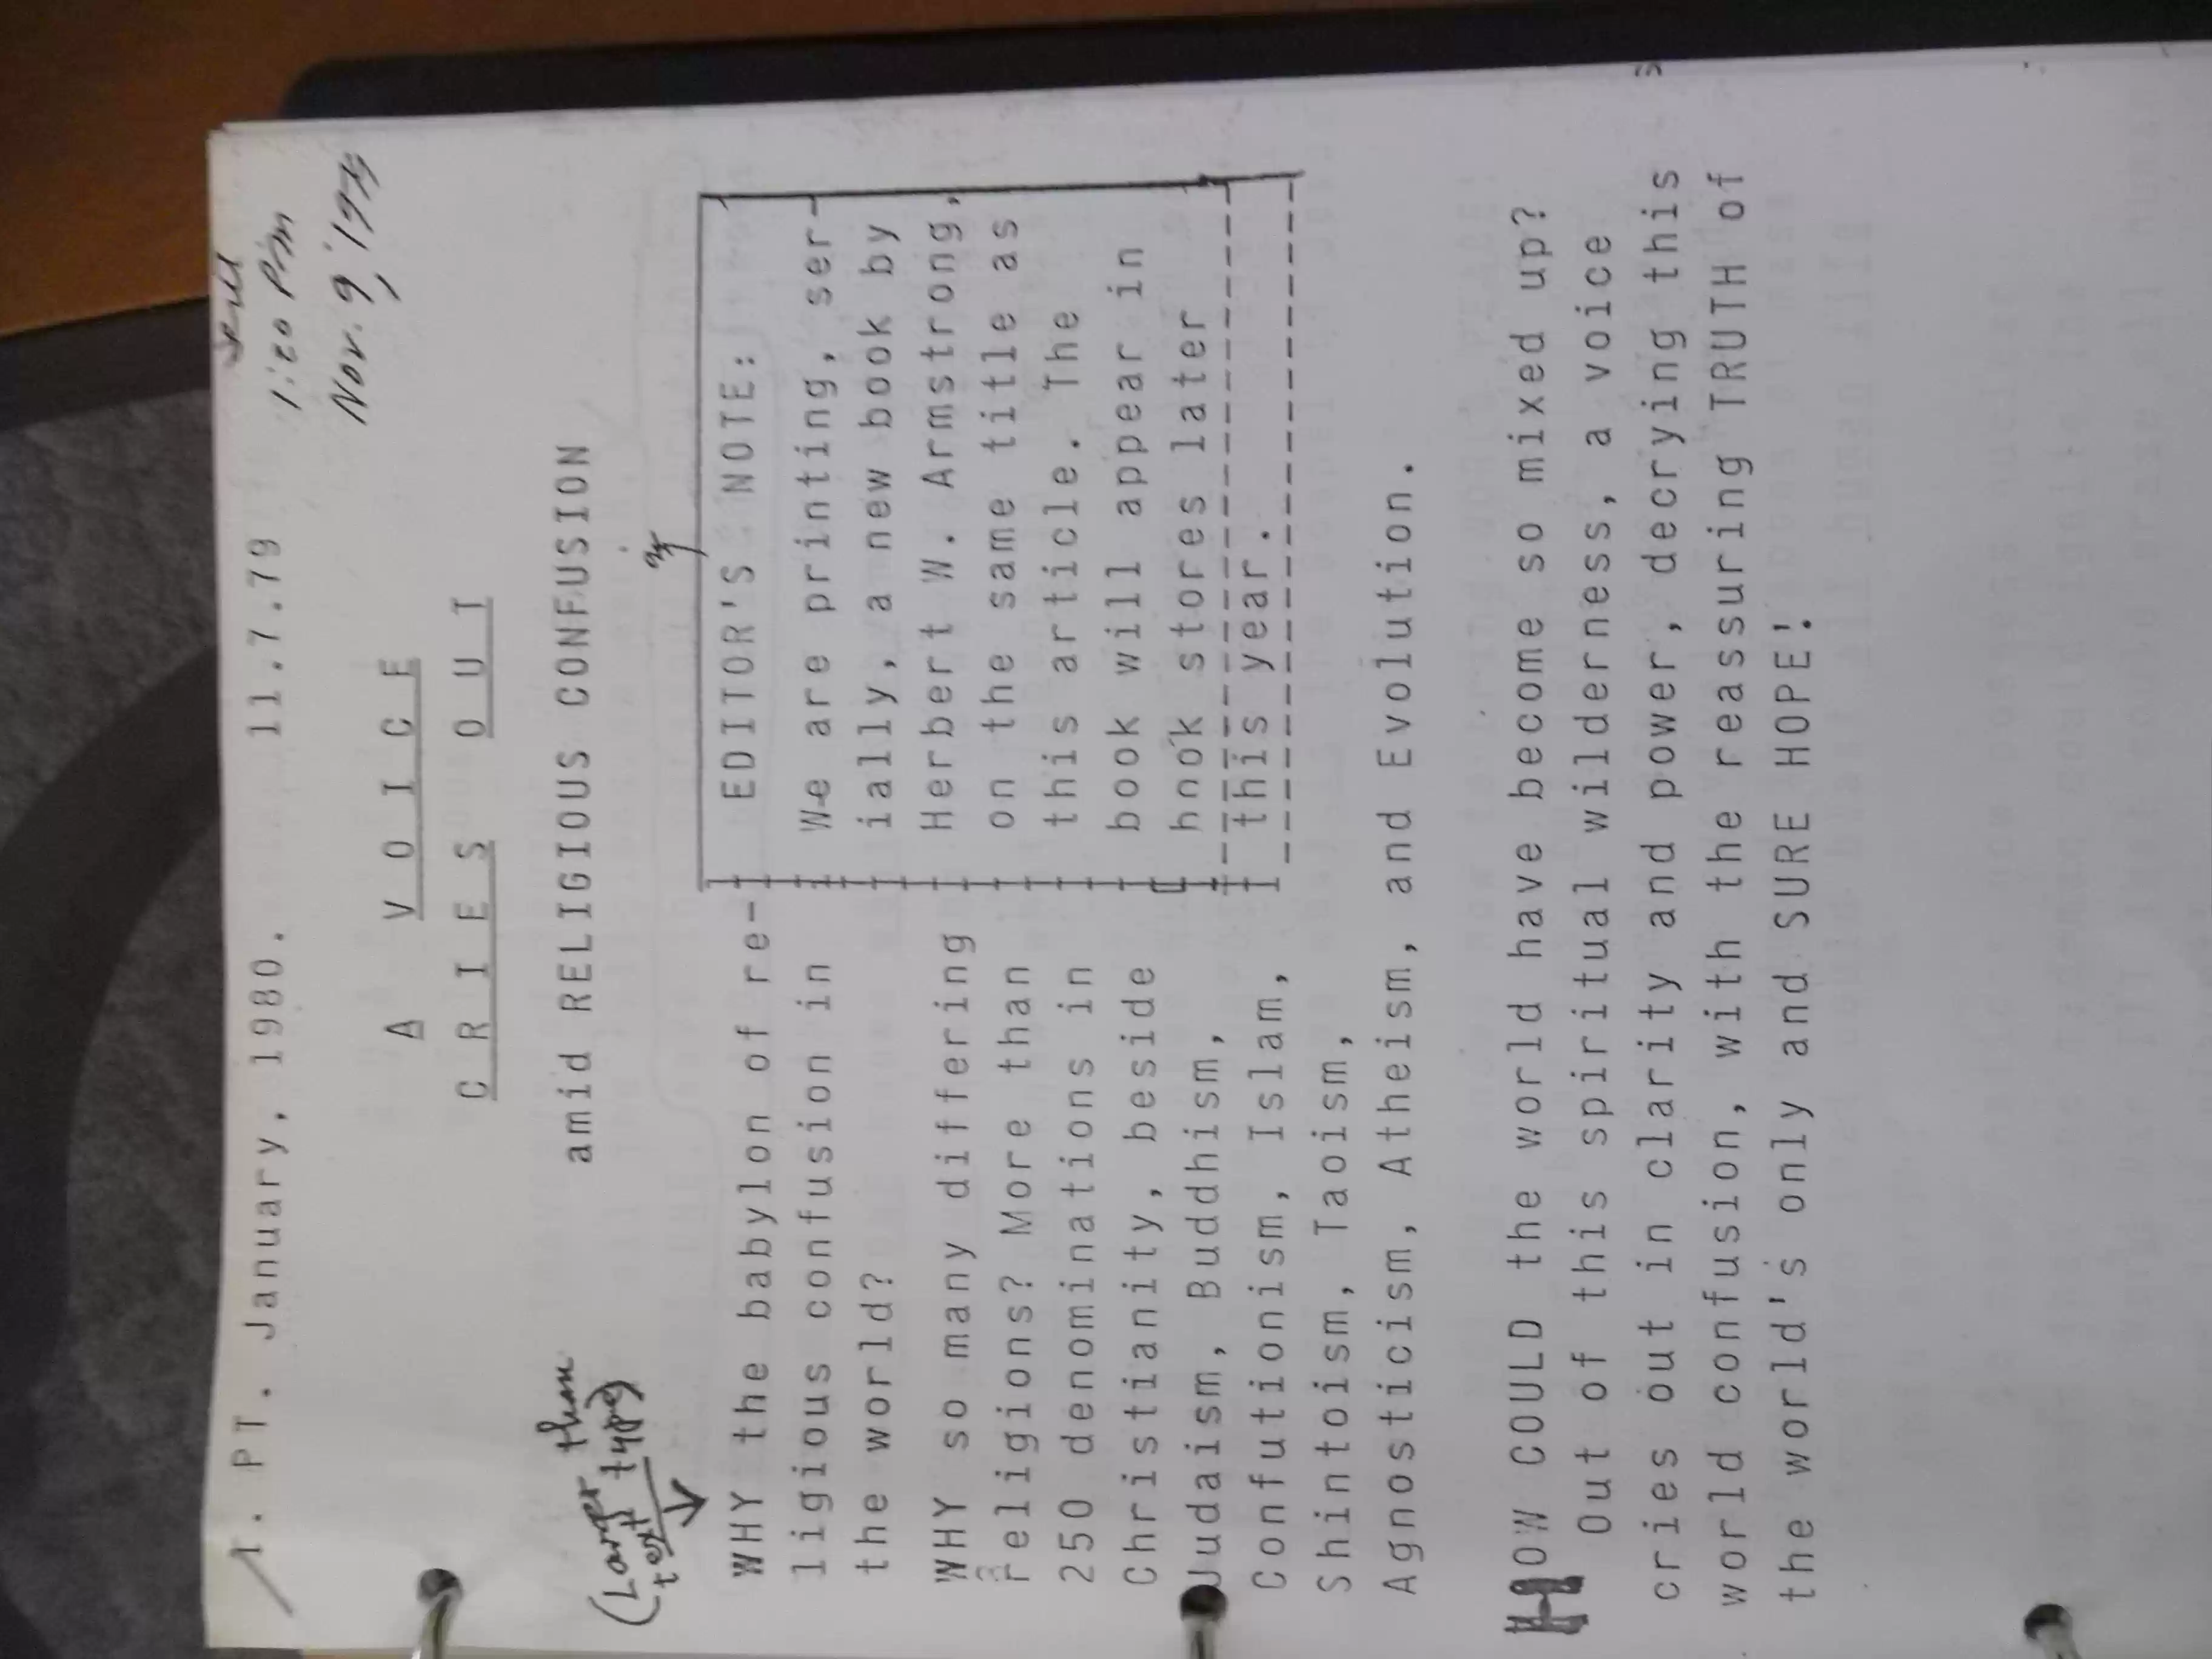 1. PT. January, 1980. 11.7.79
1:20 Pm
Nov. 9, 1979
A VOICE
CRIES OUT
amid RELIGIOUS CONFUSION
(Larger than
text type)
WHY the babylon of re-
ligious confusion in
the world?
WHY so many differing
religions? More than
250 denominations in
Christianity, beside
Judaism, Buddhism,
Confutionism, Islam,
Shintoism, Taoism,
Agnosticism, Atheism, and Evolution.
EDITOR'S NOTE:
We are printing, ser-
ially, a new book by
Herbert W. Armstrong,
on the same title as
this article. The
book will appear in
book stores later
this year.
HOW COULD the world have become so mixed up?
Out of this spiritual wilderness, a voice
cries out in clarity and power, decrying this
world confusion, with the reassuring TRUTH of
the world's only and SURE HOPE!